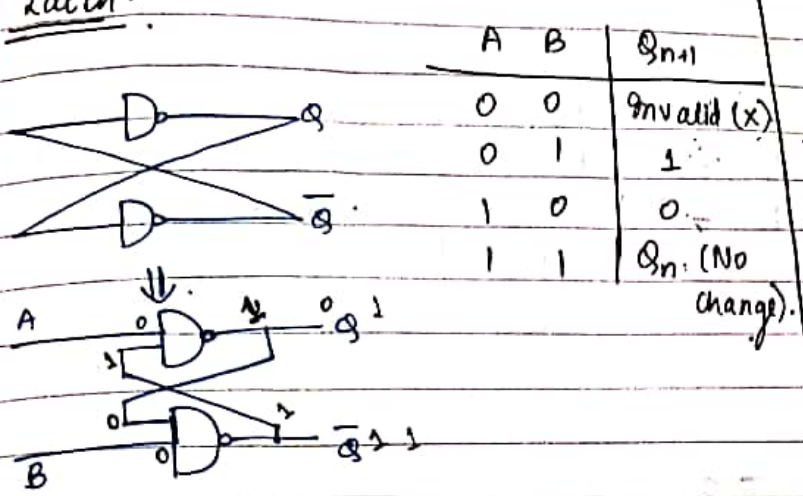 Latch.
A B Qn+1
0 0 Invalid (x)
0 1 1
1 0 0
1 1 Qn. (No change).
Q
Q̅
A 0 0 Q 1
1
0
1
B 0 Q̅ 1 1